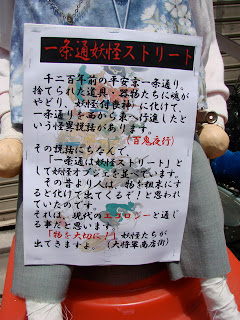 一条通妖怪ストリート
千二百年前の平安京一条通り。
捨てられた道具・器物たちに魂が
やどり、妖怪(付喪神)に化けて、
一条通りを西から東へ進行したと
いう怪異説話があります。
(百鬼夜行)
その説話にちなんで
「一条通は妖怪ストリート」と
して妖怪オブジェを並べています。
その昔より人は、物を粗末にす
ると化けて出てくるぞ!と思われ
ていたのです。
それは、現代のエコロジーと通じ
る事だと思います。
「物を大切に!」妖怪たちが
出てきますよ。(大将軍商店街)